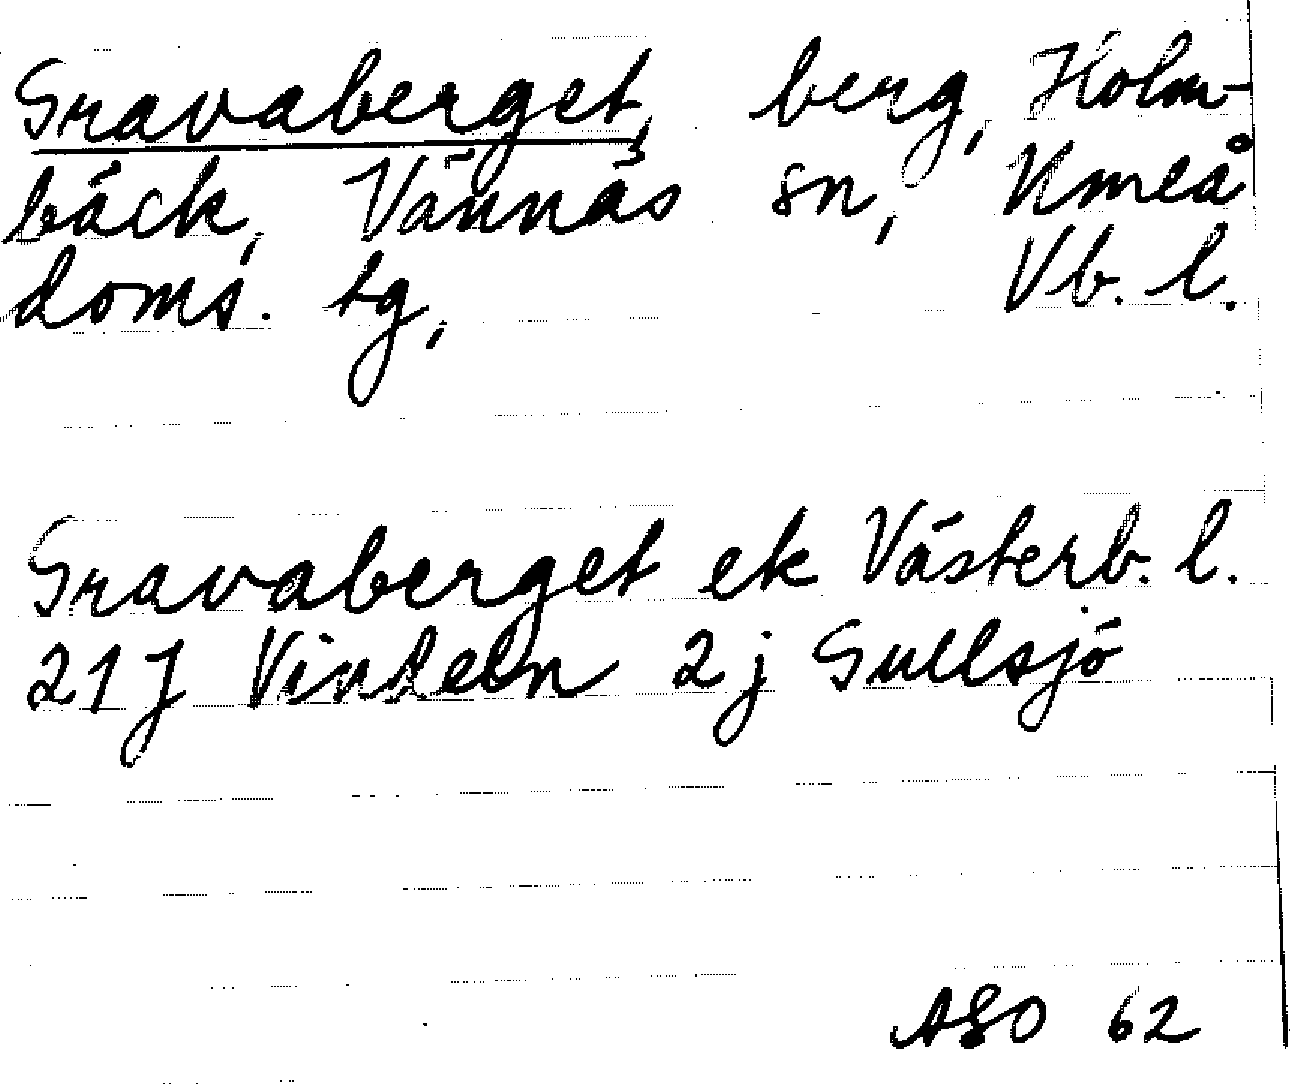 Gravaberget, berg, Holm-
bäck, Vännäs sn, Umeå
doms. tg, Vb. l.
Gravaberget ek Västerb. l.
21J Vindeln 2j Gullsjö
ASO 62